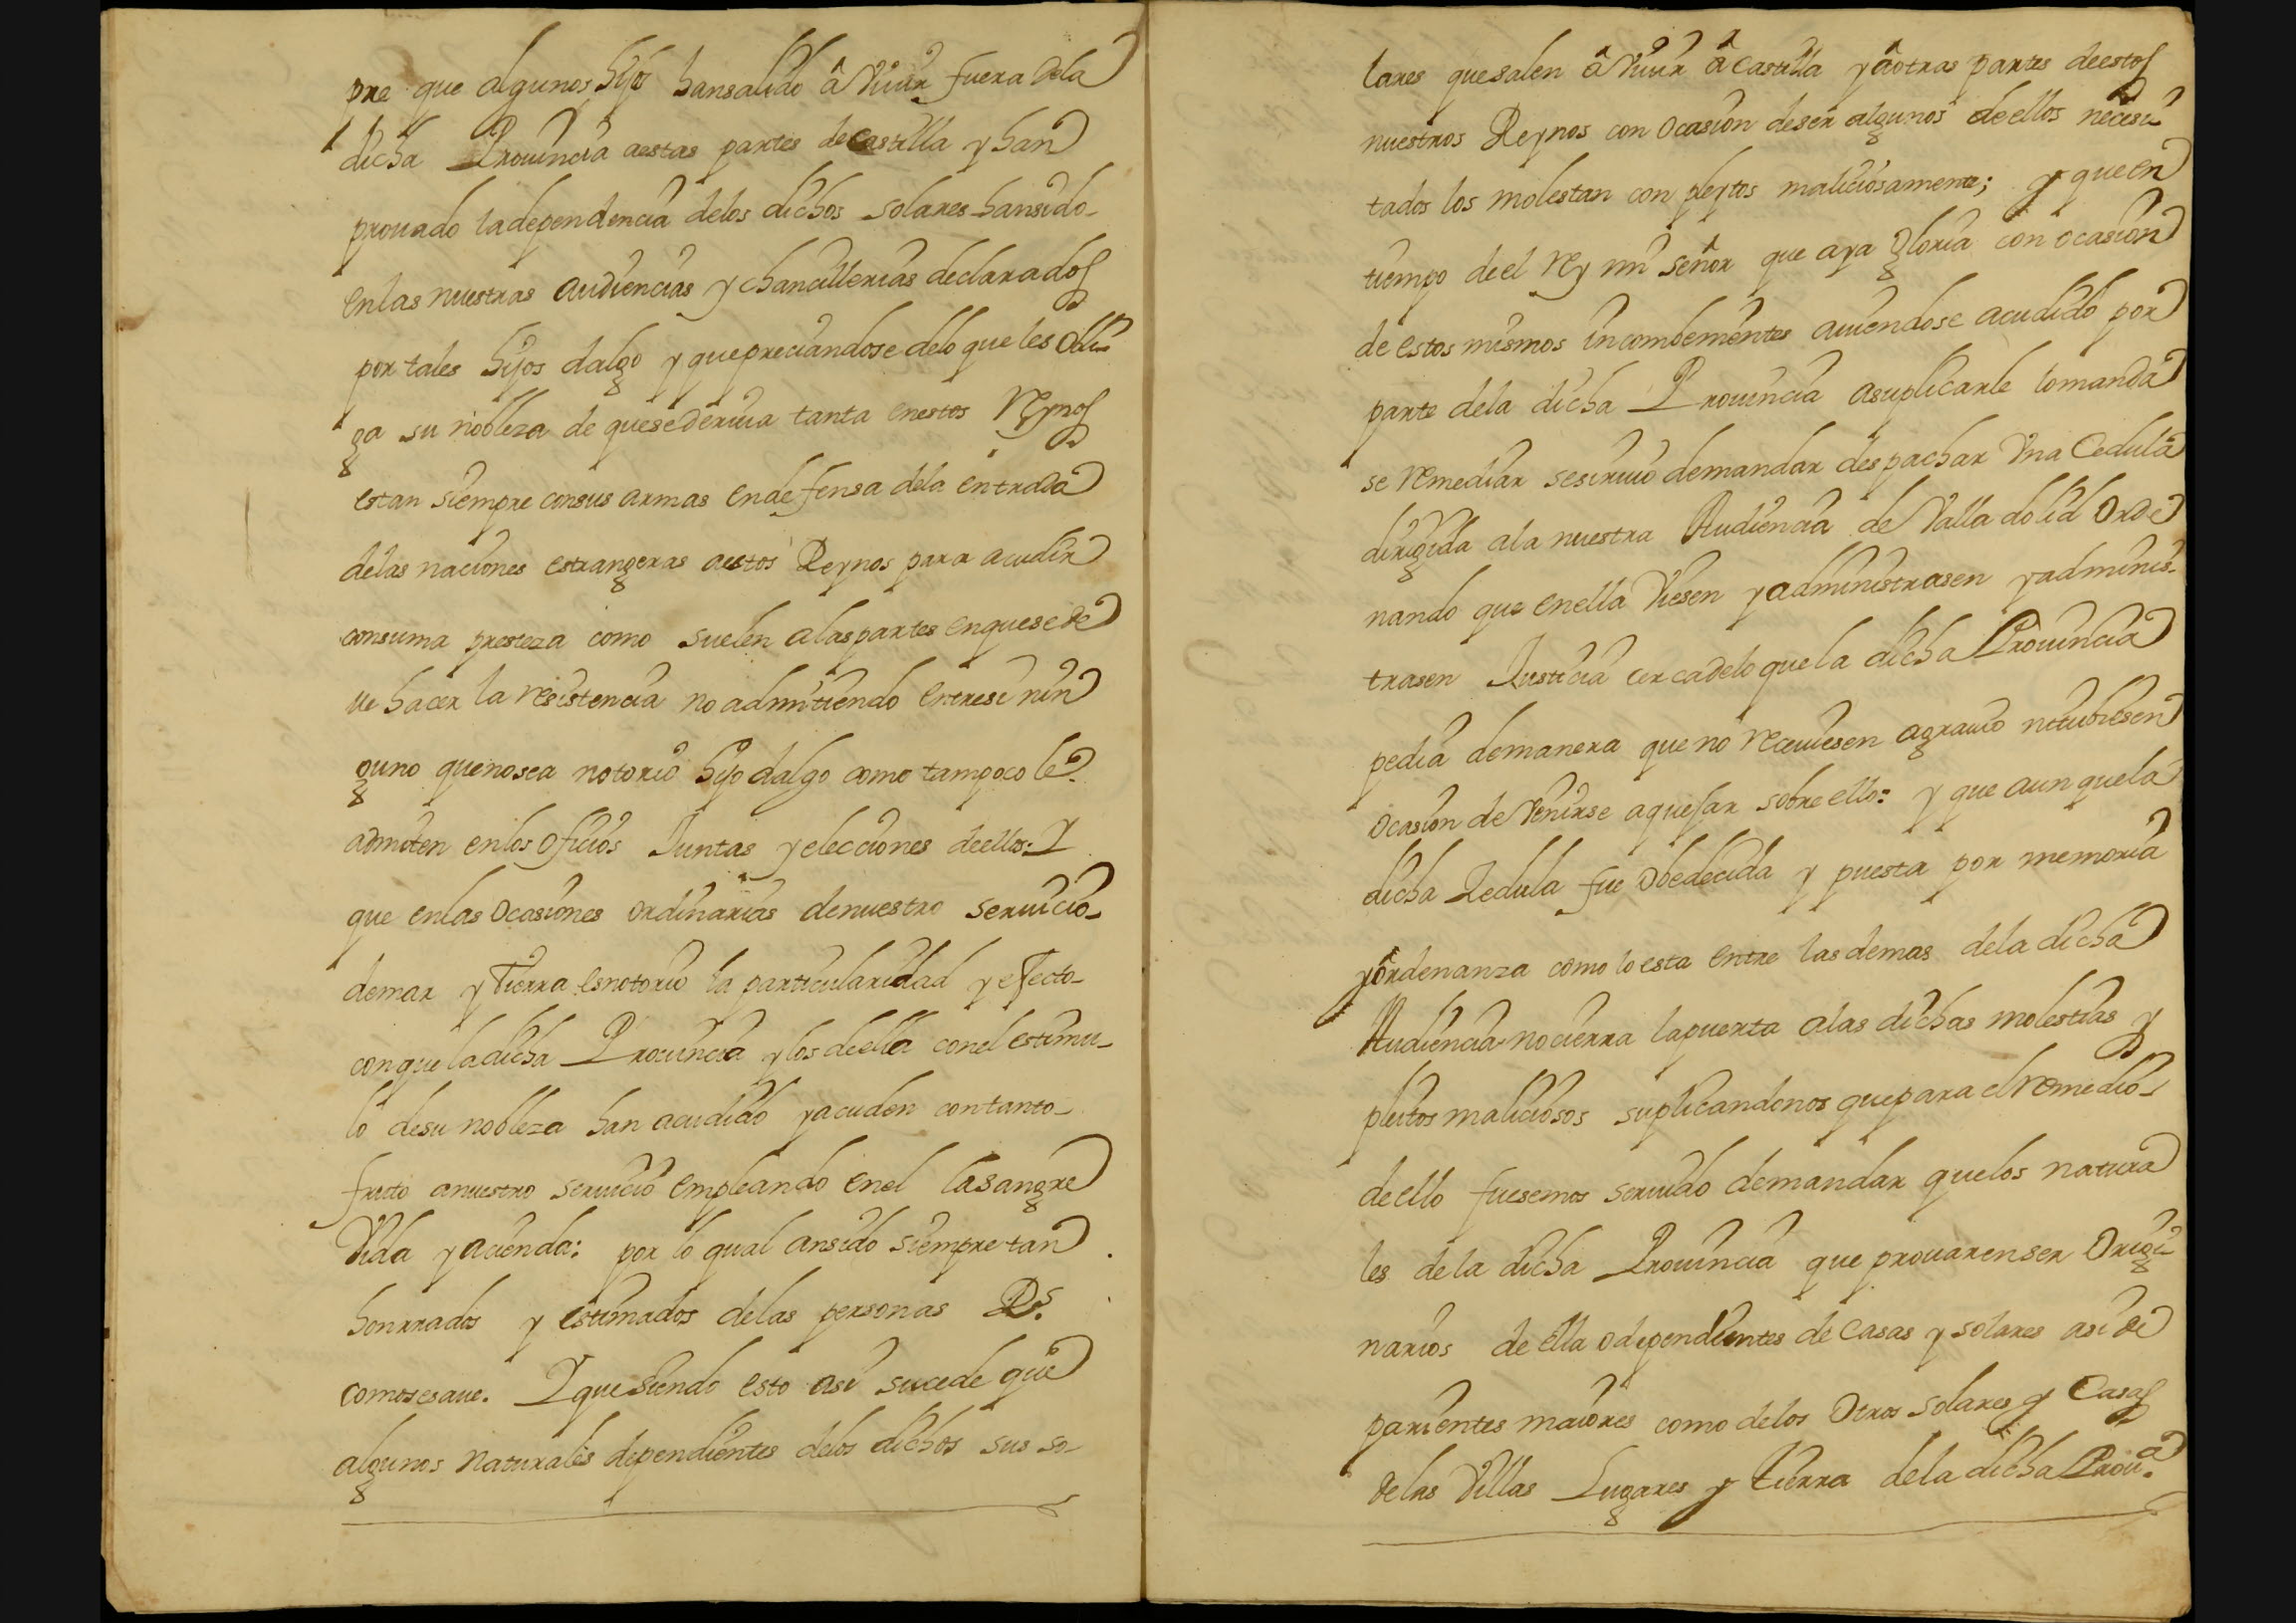 pre que algunos hijos hansalido â viuir fuera dela
dicha Prouincia aestas partes decastilla y han
prouado ladependencia delos dichos solares hansido-
enlas nuestras audiencias y chancillerias declarados
por tales hijos dalgo y quepreciandose delo que les obli-
ga su nobleza de quesederiua tanta enestos Reynos
estan siempre consus armas endefensa dela entrada
delas naciones estrangeras aestos Reynos para acudir
consuma presteza como suelen alaspartes enquesede
ue hacer la resistencia no admitiendo entresi nin
guno quenosea notorio hijo dalgo como tampoco le-
admiten enlos oficios Juntas y elecciones deellos: Y
que enlas ocasiones ordinarias denuestro seruicio-
demar y tierra esnotorio la particularidad y efecto-
conque ladicha Prouincia y los deella conel estimu-
lo desu nobleza han acudido y acuden contanto-
fruto anuestro seruicio empleando enel lasangre
vida y acienda: por lo qual ansido siempre tan
honrrados y estimados delas personas Rs.
comosesaue. Y quesiendo esto asi sucede que
algunos naturales dependientes delos dichos sus so-
lares quesalen â viuir â castilla y âotras partes deestos
nuestros Reynos con ocasion deser algunos deellos necesi-
tados los molestan con pleytos maliciosamente; y que en
tiempo de el rey mi señor que aya gloria con ocasion
de estos mismos incombenientes auiendose acudido por
parte dela dicha Prouincia asuplicarle lomanda
se remediar sesiruio demandar despachar vna Cedula
dirigida ala nuestra Audiencia de Valladolid orde
nando que enella viesen y administrasen y adminis-
trasen Justicia cercadelo quela dicha Prouincia
pedia demanera que no reciuiesen agrauio nitubiesen
ocasion de venirse aquejar sobre ello: y que aun quela
dicha Zedula fue obedecida y puesta por memoria
yôrdenanza como lo esta entre lasdemas dela dicha
Audiencia nocierra lapuerta alas dichas molestias y
pleitos maliciosos suplicandonos quepara elremedio-
deello fuesemos seruido demandar quelos natura
les de la dicha Prouincia que prouarenser origi-
narios de ella odependientes de casas y solares asi de
parientes maiores como delos otros solares y Casas
delas Villas Lugares y tierra dela dicha Proua.